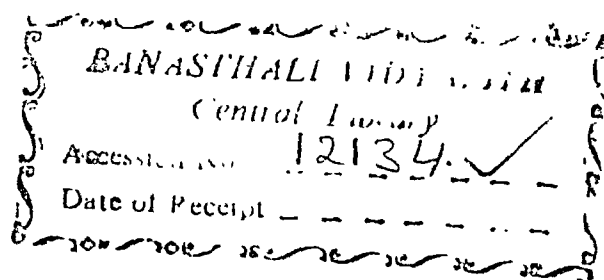 BANASTHALI VIDYAPITH
Central Library
Accession No. 12134 ✓
Date of Receipt